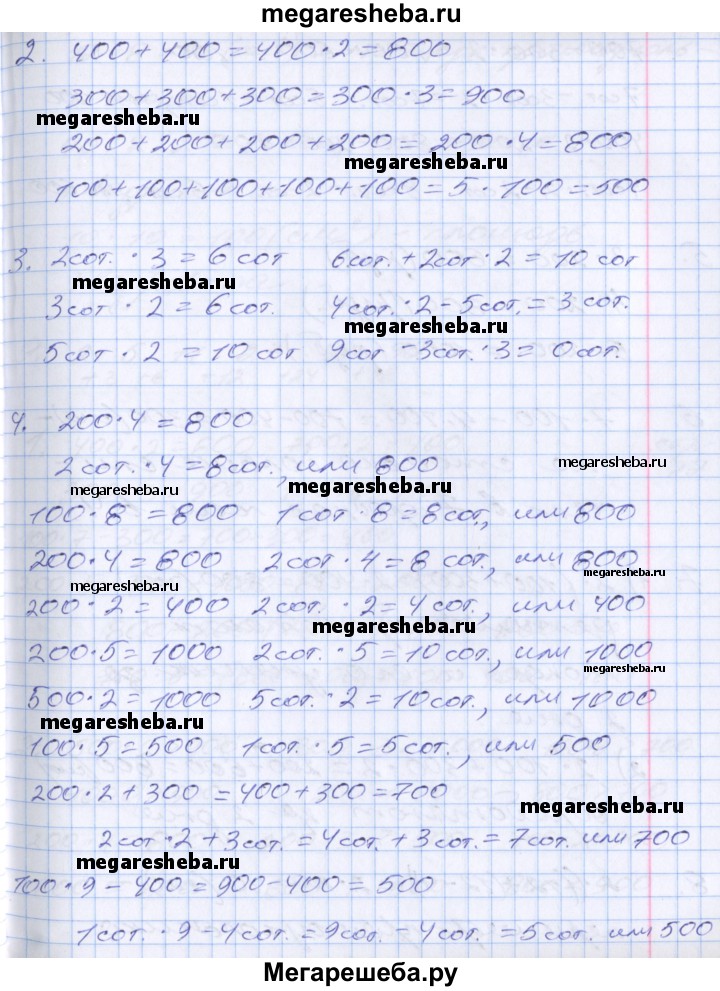 megaresheba.ru
2. 400+400=400·2=800
300+300+300=300·3=900
megaresheba.ru
200+200+200+200=200·4=800
megaresheba.ru
100+100+100+100+100=5·100=500
3. 2сот.·3=6сот 6сот.+2сот·2=10 сот
megaresheba.ru
3сот·2=6сот. 4сот.·2-5сот.=3сот.
megaresheba.ru
5сот·2=10 сот 9сот-3сот.·3=0сот.
4. 200·4=800
2сот.·4=8сот., или 800
megaresheba.ru
megaresheba.ru
megaresheba.ru
100·8=800 1сот·8=8сот., или 800
200·4=800 2сот·4=8 сот., или 800
megaresheba.ru
megaresheba.ru
200·2=400 2сот.·2=4сот., или 400
megaresheba.ru
200·5=1000 2сот.·5=10сот., или 1000
megaresheba.ru
500·2=1000 5сот.·2=10сот., или 1000
megaresheba.ru
100·5=500 1сот.·5=5сот., или 500
200·2+300=400+300=700
megaresheba.ru
2сот·2+3сот.=4сот.+3сот.=7сот. или 700
megaresheba.ru
100·9-400=900-400=500
1сот.·9-4сот.=9сот.-4сот.=5сот. или 500
Мегарешеба.ру